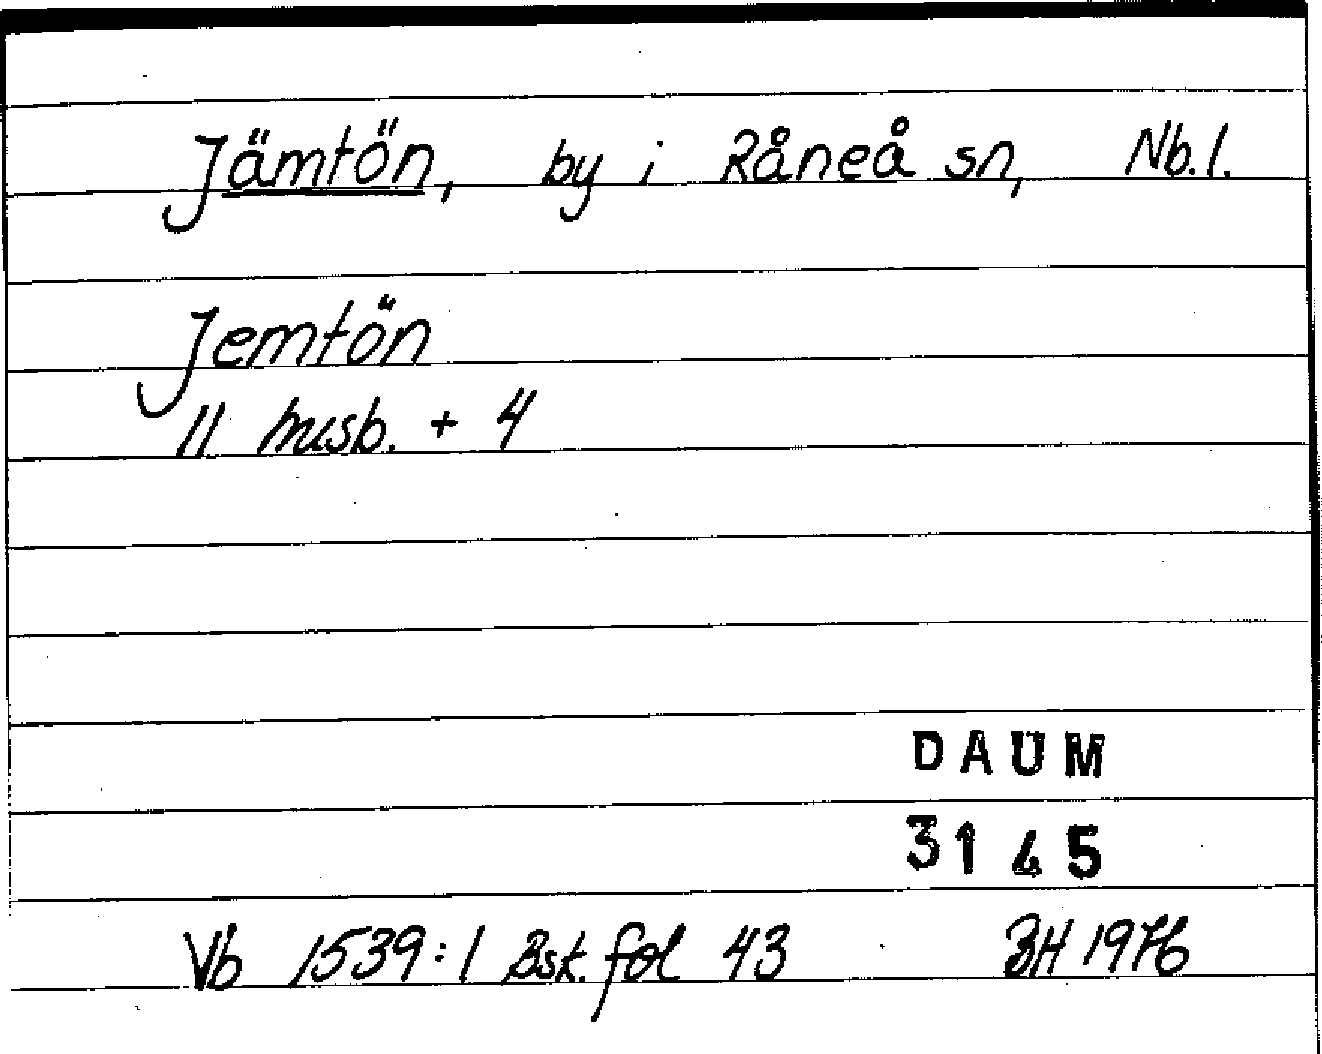 Jämtön, by i Råneå sn, Nb.l.
Jemtön
11 husb. + 4
DAUM
3145
Vb 1539:1 Bsk. fol 43 BH 1976